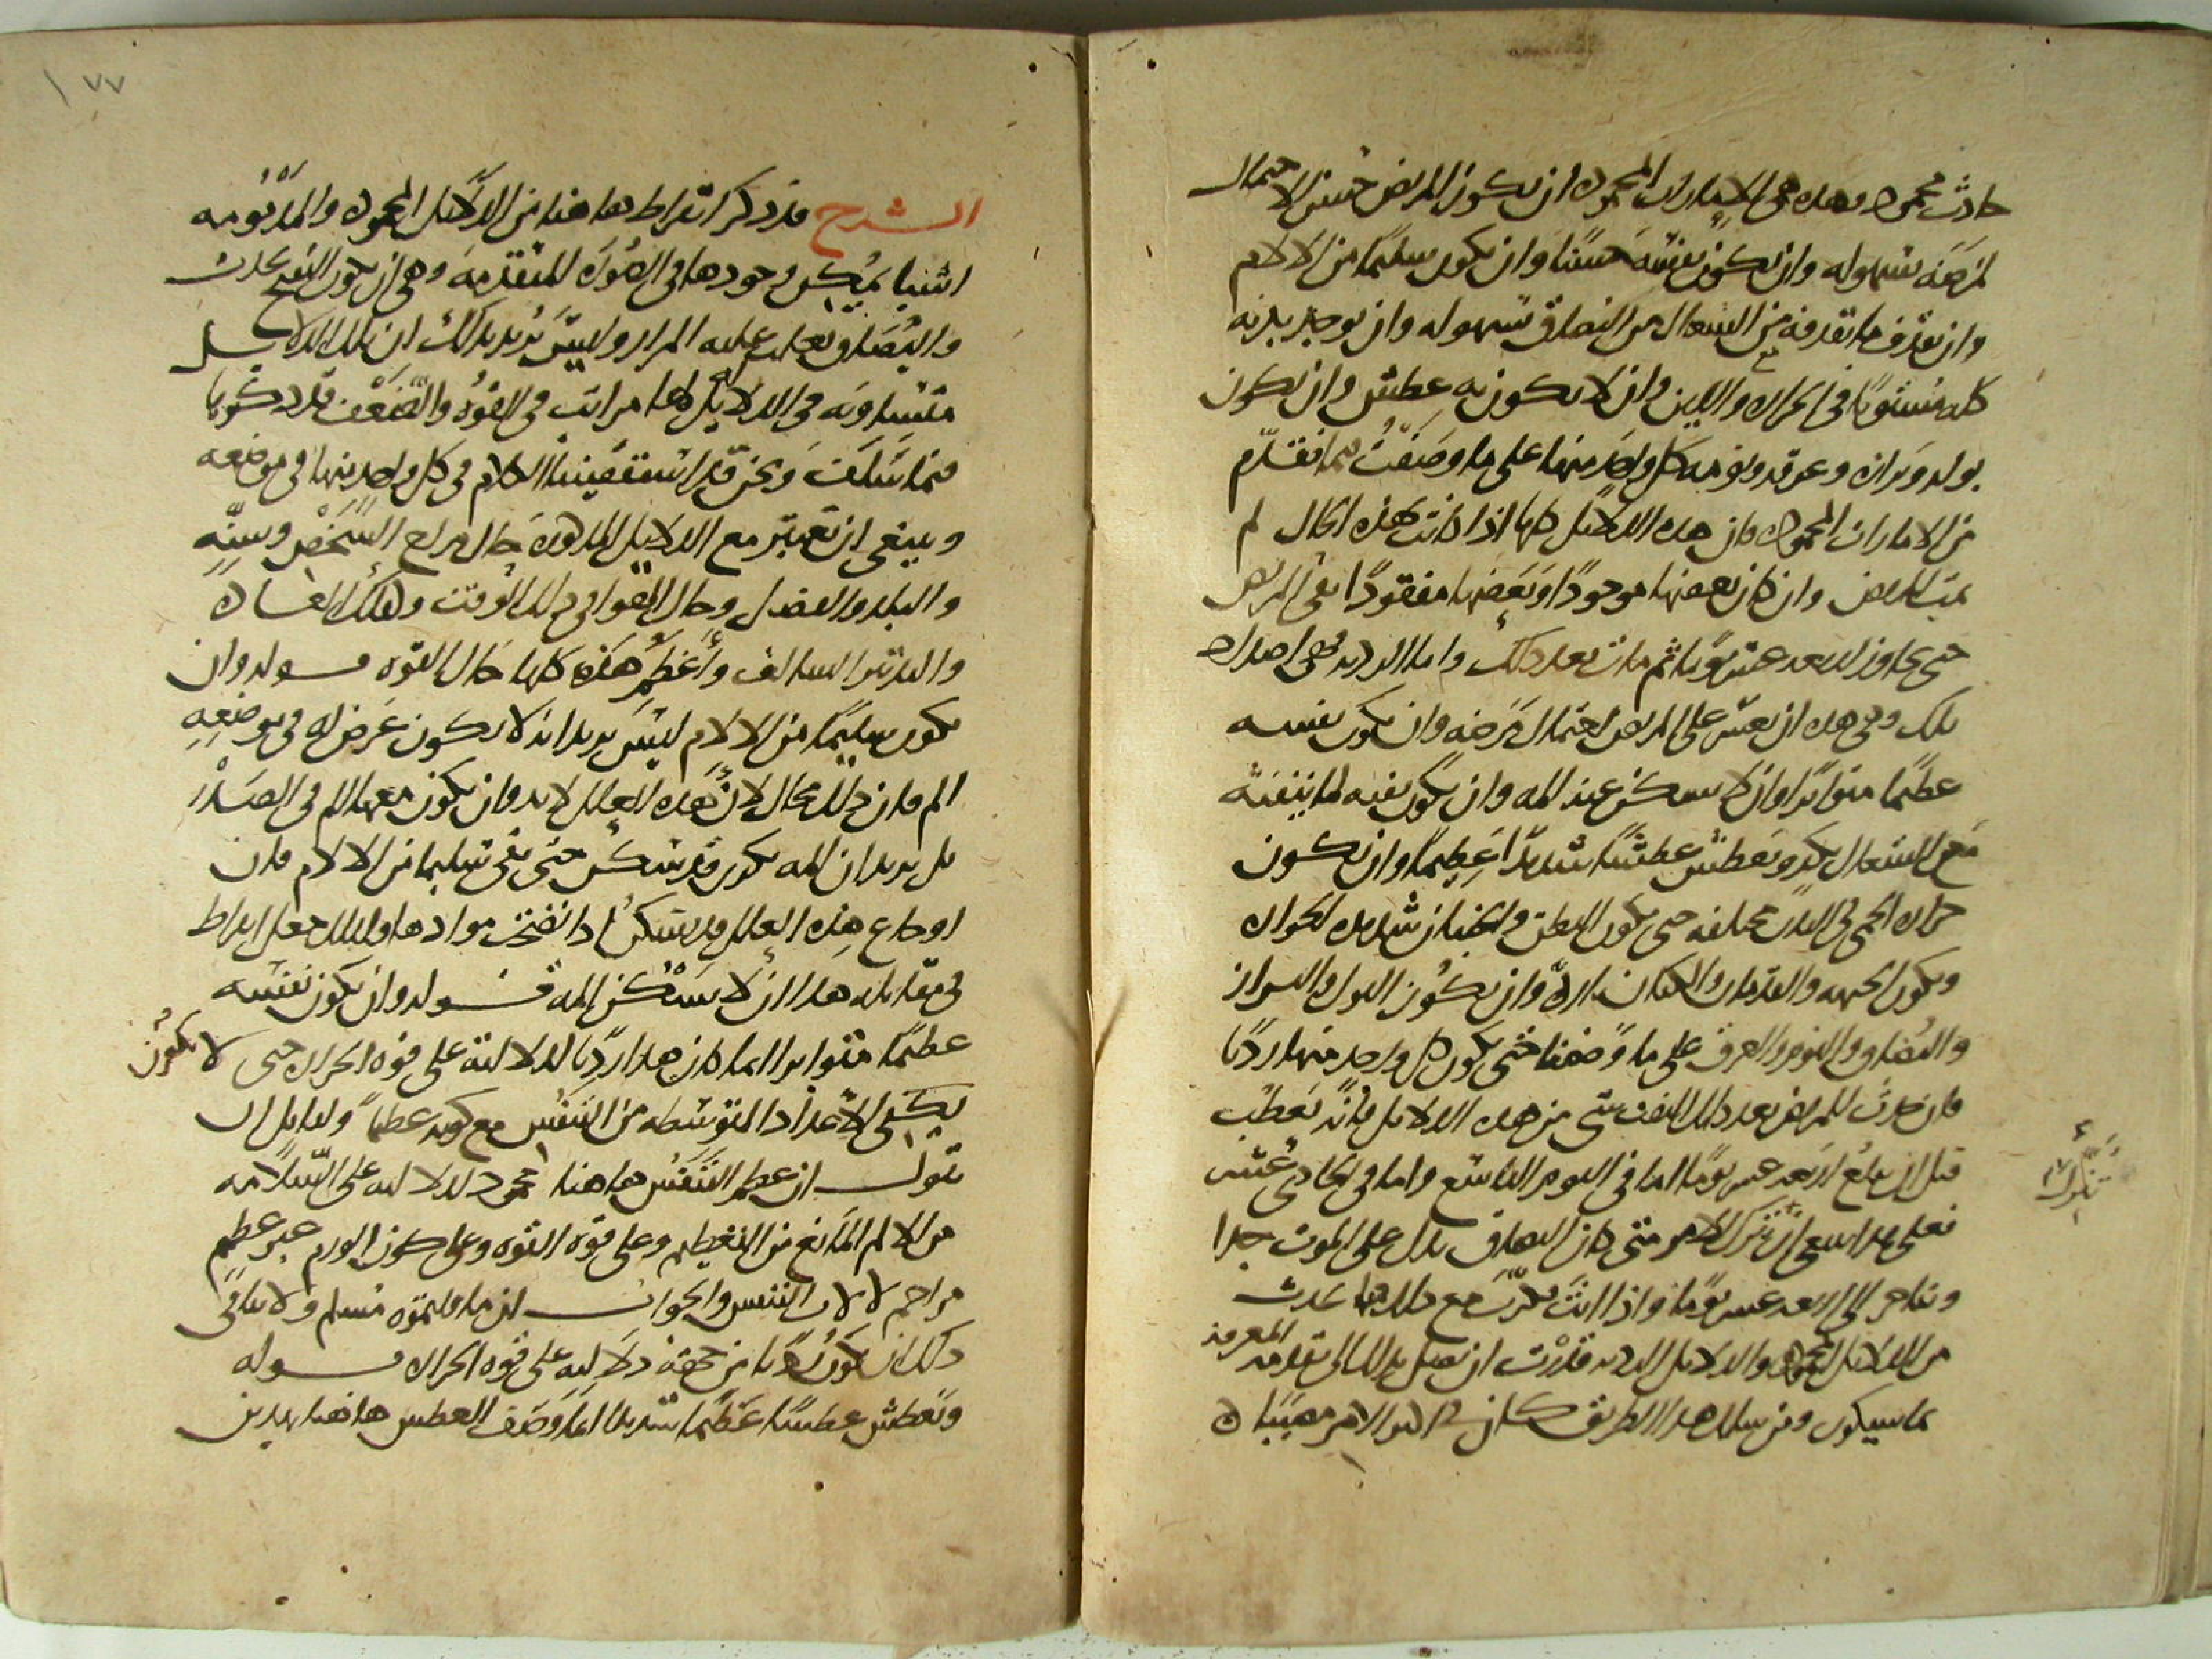 حادث محمود وهذه هى الامارات المحمودة ان يكون المريض حسن الاحتمال
لمرضه بسهوله وان يكون نفسه حسنا وان يكون سليما من الالام
وان يقذف ما يقذفه من السعال من البصاق بسهوله وان يوجد بدنه
كله مستويا فى الحراره واللين وان لا يكون به عطش وان يكون
بوله وبرازه وعرقه ونومه كل واحد منها على ما وصفت فيما تقدم
من الامارات المحموده فان هذه الدلايل كلها اذا كانت بهذه الحال لم
يمت المريض وان كان بعضها موجودا وبعضها مفقودا بقى المريض
حتى يجاوز اربعة عشر يوما ثم مات بعد ذلك واما الرديه فهى اضداد
تلك وهى هذه ان يعسر على المريض احتمال مرضه وان يكون نفسه
عظيما متواترا وان لا يسكن عنه المه وان يكون نفثه لما ينفثه
مع السعال بكد ويعطش عطشا شديدا عظيما وان يكون
حراره الحمى فى البدن مختلفه حتى يكون البطن والجنبان شديده الحراره
ويكون الجبهه والقدمان والكفان بارده وان يكون البول والبراز
والبصاق والنوم والعرق على ما وصفنا حتى يكون كل واحد منها رديا
فان حدث للمريض بعد ذلك النفث شى من هذه الدلايل فانه يعطب
قبل ان يبلغ اربعة عشر يوما اما فى اليوم التاسع واما فى الحادى عشر
فعلى هذا ينبغى ان تنزل الامر متى كان البصاق يدل على الموت جدا
وتاخر الى اربعه عشر يوما واذا انت فكرت مع ذلك فيما يحدث
من الدلايل المحموده والدلايل الرديه قدرت ان تصل بذلك الى تقدمه المعرفه
بما سيكون ومن سلك هذا الطريق كان فى اكثر الامر مصيبا ه
تنزل
١٧٧
الشرح قد ذكر ابقراط هاهنا من الدلايل المحموده والمذمومه
اشيا يمكن وجودها فى الصوره المتقدمه وهى ان يكون النفث يحدث
والبصاق يغلب عليه المرار وليس يريد بذلك ان تلك الدلايل
متساويه فى الدلايل لها مراتب فى القوه والضعف قد ذكرنا
فيما سلف ونحن قد استقصينا الكلام فى كل واحد منها فى موضعه
وينبغى ان تعتبر مع الدلايل المذكوره حال مزاج الشخص وسنه
والبلد والفصل وحال الهوا فى ذلك الوقت وكذلك العاده
والتدبير السالف واعظم هذه كلها حال القوه قوله وان
يكون سليما من الالام ليس يريد انه لا يكون عرض له فى موضعه
الم فان ذلك محال لان هذه العلل لابد وان يكون معها الم فى الصدر
بل يريد ان المه يكون قد سكن حتى بقى سليما من الالام فان
اوجاع هذه العلل قد يسكن اذا نضجت موادها ولذلك جعل ابقراط
فى مقابله هذا ان لا يسكن المه قوله وان يكون نفسه
عظيما متواترا انما كان هذا رديا لدلالته على قوه الحراره حتى لا يكون
يكتفى الاعداد المتوسطه من التنفس مع كونه عظيما ولقايل ان
يقول ان عظم التنفس هاهنا محمود لدلالته على السلامه
من الالم المانع من التعظيم وعلى قوه القوه وعلى كون الورم غير عظيم
مزاحم لالات التنفس والجواب ان ما قلتموه مسلم ولا ينافى
ذلك ان يكون رديا من جهة دلالته على قوه الحراره قوله
ويعطش عطشا عظيما شديدا انما وصف العطش هاهنا بهذين